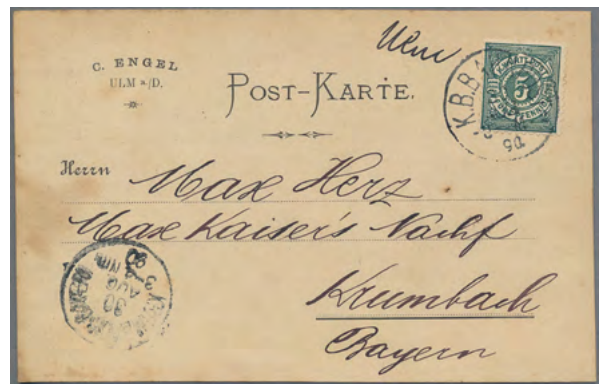 Ulm
C. ENGEL
ULM a/D.
POST-KARTE.
K.B.B
5
Herrn Max Herz
Max Kaiser's Nachf
Krumbach
Bayern
30
AUG
3-4 Nm
90